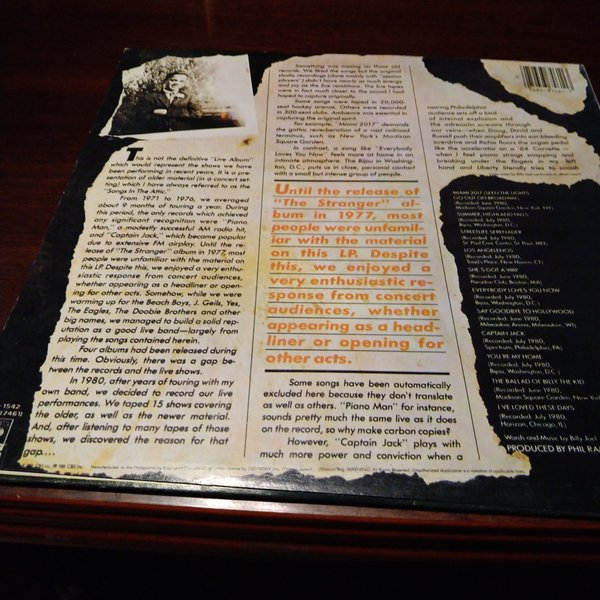 This is not the definitive "Live Album"
which would represent the shows we have
been performing in recent years. It is a pre-
sentation of older material (in a concert set-
ting) which I have always referred to as the
"Songs In The Attic."
From 1971 to 1976, we averaged
about 9 months of touring a year. During
this period, the only records which achieved
any significant recognition were "Piano
Man," a modestly successful AM radio hit,
and "Captain Jack," which became popular
due to extensive FM airplay. Until the re-
lease of "The Stranger" album in 1977, most
people were unfamiliar with the material on
this LP. Despite this, we enjoyed a very enthu-
siastic response from concert audiences,
whether appearing as a headliner or open-
ing for other acts. Somehow, while we were
warming up for the Beach Boys, J. Geils, Yes,
The Eagles, The Doobie Brothers and other
big names, we managed to build a solid rep-
utation as a good live band—largely from
playing the songs contained herein.
Four albums had been released during
this time. Obviously, there was a gap be-
tween the records and the live shows.
In 1980, after years of touring with my
own band, we decided to record our live
performances. We taped 15 shows covering
the older, as well as the newer material.
And, after listening to many tapes of those
shows, we discovered the reason for that
gap....
Something was missing on those old
records. We liked the songs but the original
studio recordings (done mainly with "session
players") didn't have nearly as much energy
and joy as the live renditions. The live tapes
were in fact much closer to the sound I had
hoped to capture originally.
Some songs were taped in 20,000-
seat hockey arenas. Others were recorded
in 300-seat clubs. Ambience was essential in
capturing the original spirit.
For example, "Miami 2017" demands
the gothic reverberation of a vast railroad
terminus, such as New York's Madison
Square Garden.
In contrast, a song like "Everybody
Loves You Now" feels more at home in an
intimate atmosphere. The Bijou in Washing-
ton, D.C., puts us in close, personal contact
with a small but intense group of people.
Until the release of
"The Stranger" al-
bum in 1977, most
people were unfamil-
iar with the material
on this LP. Despite
this, we enjoyed a
very enthusiastic re-
sponse from concert
audiences, whether
appearing as a head-
liner or opening for
other acts.
Some songs have been automatically
excluded here because they don't translate
as well as others. "Piano Man" for instance,
sounds pretty much the same live as it does
on the record, so why make carbon copies?
However, "Captain Jack" plays with
much more power and conviction when a
roaring Philadelphia
audience sets off a kind
of internal explosion and
the adrenalin screams through
our veins—when Doug, David and
Russell push their amplifiers into ear-bleeding
overdrive and Richie floors the organ pedal
like the accelerator on a '64 Corvette—
when I feel piano strings snapping and
breaking under the fingers in my left
hand and Liberty literally tries to smash
MIAMI 2017 (SEEN THE LIGHTS
GO OUT ON BROADWAY)
(Recorded: June 1980,
Madison Square Garden, New York, NY)
SUMMER, HIGHLAND FALLS
(Recorded: July 1980,
Bijou, Washington, D.C.)
STREETLIFE SERENADER
(Recorded: July 1980,
St. Paul Civic Center, St. Paul, MN)
LOS ANGELENOS
(Recorded: July 1980,
Toad's Place, New Haven, CT)
SHE'S GOT A WAY
(Recorded: June 1980,
Paradise Club, Boston, MA)
EVERYBODY LOVES YOU NOW
(Recorded: July 1980,
Bijou, Washington, D.C.)
SAY GOODBYE TO HOLLYWOOD
(Recorded: June 1980,
Milwaukee Arena, Milwaukee, WI)
CAPTAIN JACK
(Recorded: July 1980,
Spectrum, Philadelphia, PA)
YOU'RE MY HOME
(Recorded: July 1980,
Bijou, Washington, D.C.)
THE BALLAD OF BILLY THE KID
(Recorded: June 1980,
Madison Square Garden, New York
I'VE LOVED THESE DAYS
(Recorded: July 1980,
Horizon, Chicago, IL)
Words and Music by Billy Joel
PRODUCED BY PHIL RA
-1542